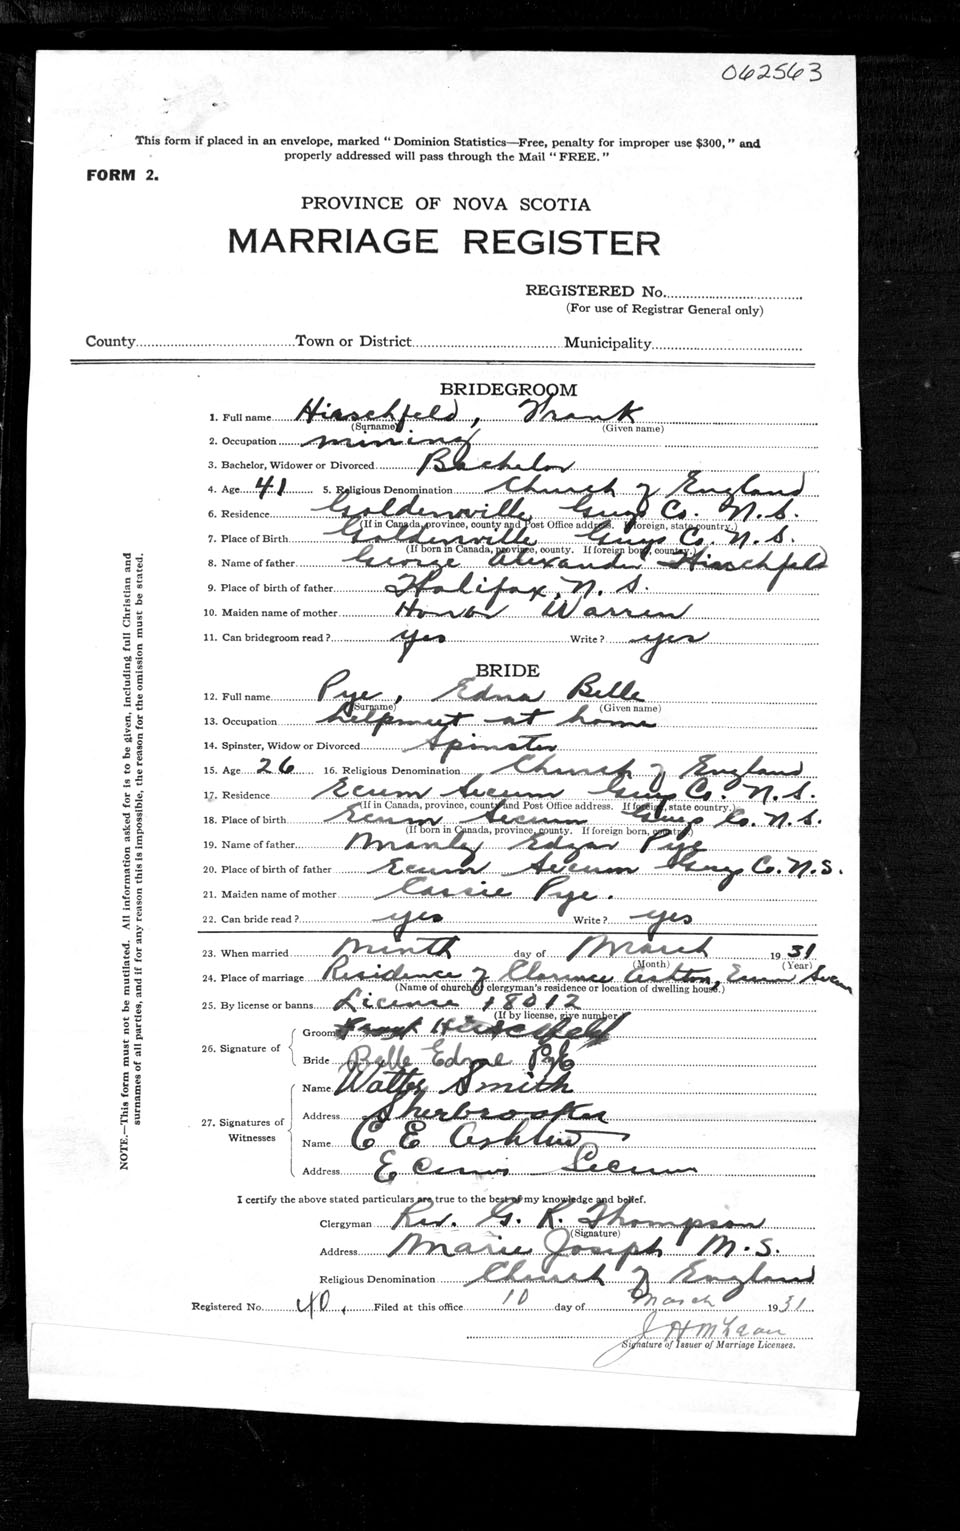 062563
This form if placed in an envelope, marked "Dominion Statistics—Free, penalty for improper use $300," and
properly addressed will pass through the Mail "FREE."
FORM 2.
PROVINCE OF NOVA SCOTIA
MARRIAGE REGISTER
REGISTERED No.
(For use of Registrar General only)
County Town or District Municipality
BRIDEGROOM
1. Full name Hirschfeld, Frank
(Surname) (Given name)
2. Occupation mining
3. Bachelor, Widower or Divorced Bachelor
4. Age 41 5. Religious Denomination Church of England
6. Residence Goldenville Guys Co. N.S.
(If in Canada, province, county and Post Office address. If foreign, state country.)
7. Place of Birth Goldenville Guys Co. N.S.
(If born in Canada, province, county. If foreign born, country.)
8. Name of father George Alexander Hirschfeld
9. Place of birth of father Halifax, N.S.
10. Maiden name of mother Honor Warren
11. Can bridegroom read? yes Write? yes
BRIDE
12. Full name Pye, Edna Belle
(Surname) (Given name)
13. Occupation helpmeet at home
14. Spinster, Widow or Divorced Spinster
15. Age 26 16. Religious Denomination Church of England
17. Residence Ecum Secum Guys Co. N.S.
(If in Canada, province, county and Post Office address. If foreign, state country.)
18. Place of birth Ecum Secum Guys Co. N.S.
(If born in Canada, province, county. If foreign born, country.)
19. Name of father Manly Edgar Pye
20. Place of birth of father Ecum Secum Guys Co. N.S.
21. Maiden name of mother Cassie Pye.
22. Can bride read? yes Write? yes
23. When married Ninth day of March 1931
(Month) (Year)
24. Place of marriage Residence of Clarence Ashton, Ecum Secum
(Name of church of clergyman's residence or location of dwelling house.)
25. By license or banns License 18012
(If by license, give number)
26. Signature of
Groom Frank Hirschfeld
Bride Belle Edna Pye
27. Signatures of Witnesses
Name Walter Smith
Address Sherbrooke
Name C E Ashton
Address Ecum Secum
I certify the above stated particulars are true to the best of my knowledge and belief.
Clergyman Rev. G. R. Thompson
(Signature)
Address Marie Joseph N.S.
Religious Denomination Church of England
Registered No. 40. Filed at this office 10 day of March 1931
J H McLean
Signature of Issuer of Marriage Licenses.
NOTE.—This form must not be mutilated. All information asked for is to be given, including full Christian and
surnames of all parties, and if for any reason this is impossible, the reason for the omission must be stated.